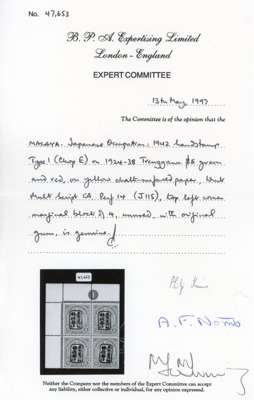 No. 47,653
B. P. A. Expertizing Limited
London - England
EXPERT COMMITTEE
13th May 1997
The Committee is of the opinion that the
MALAYA. Japanese Occupation: 1942 handstamp.
Type 1 (Chop E) on 1924-38 Trengganu $5 green
and red, on yellow chalk-surfaced paper, wmk
Mult Script CA. Perf 14 (J115), top left corner
marginal block of 4, unused, with original
gum, is genuine.
47,653
1
Neither the Company nor the members of the Expert Committee can accept
any liability, either collective or individual, for any opinion expressed.